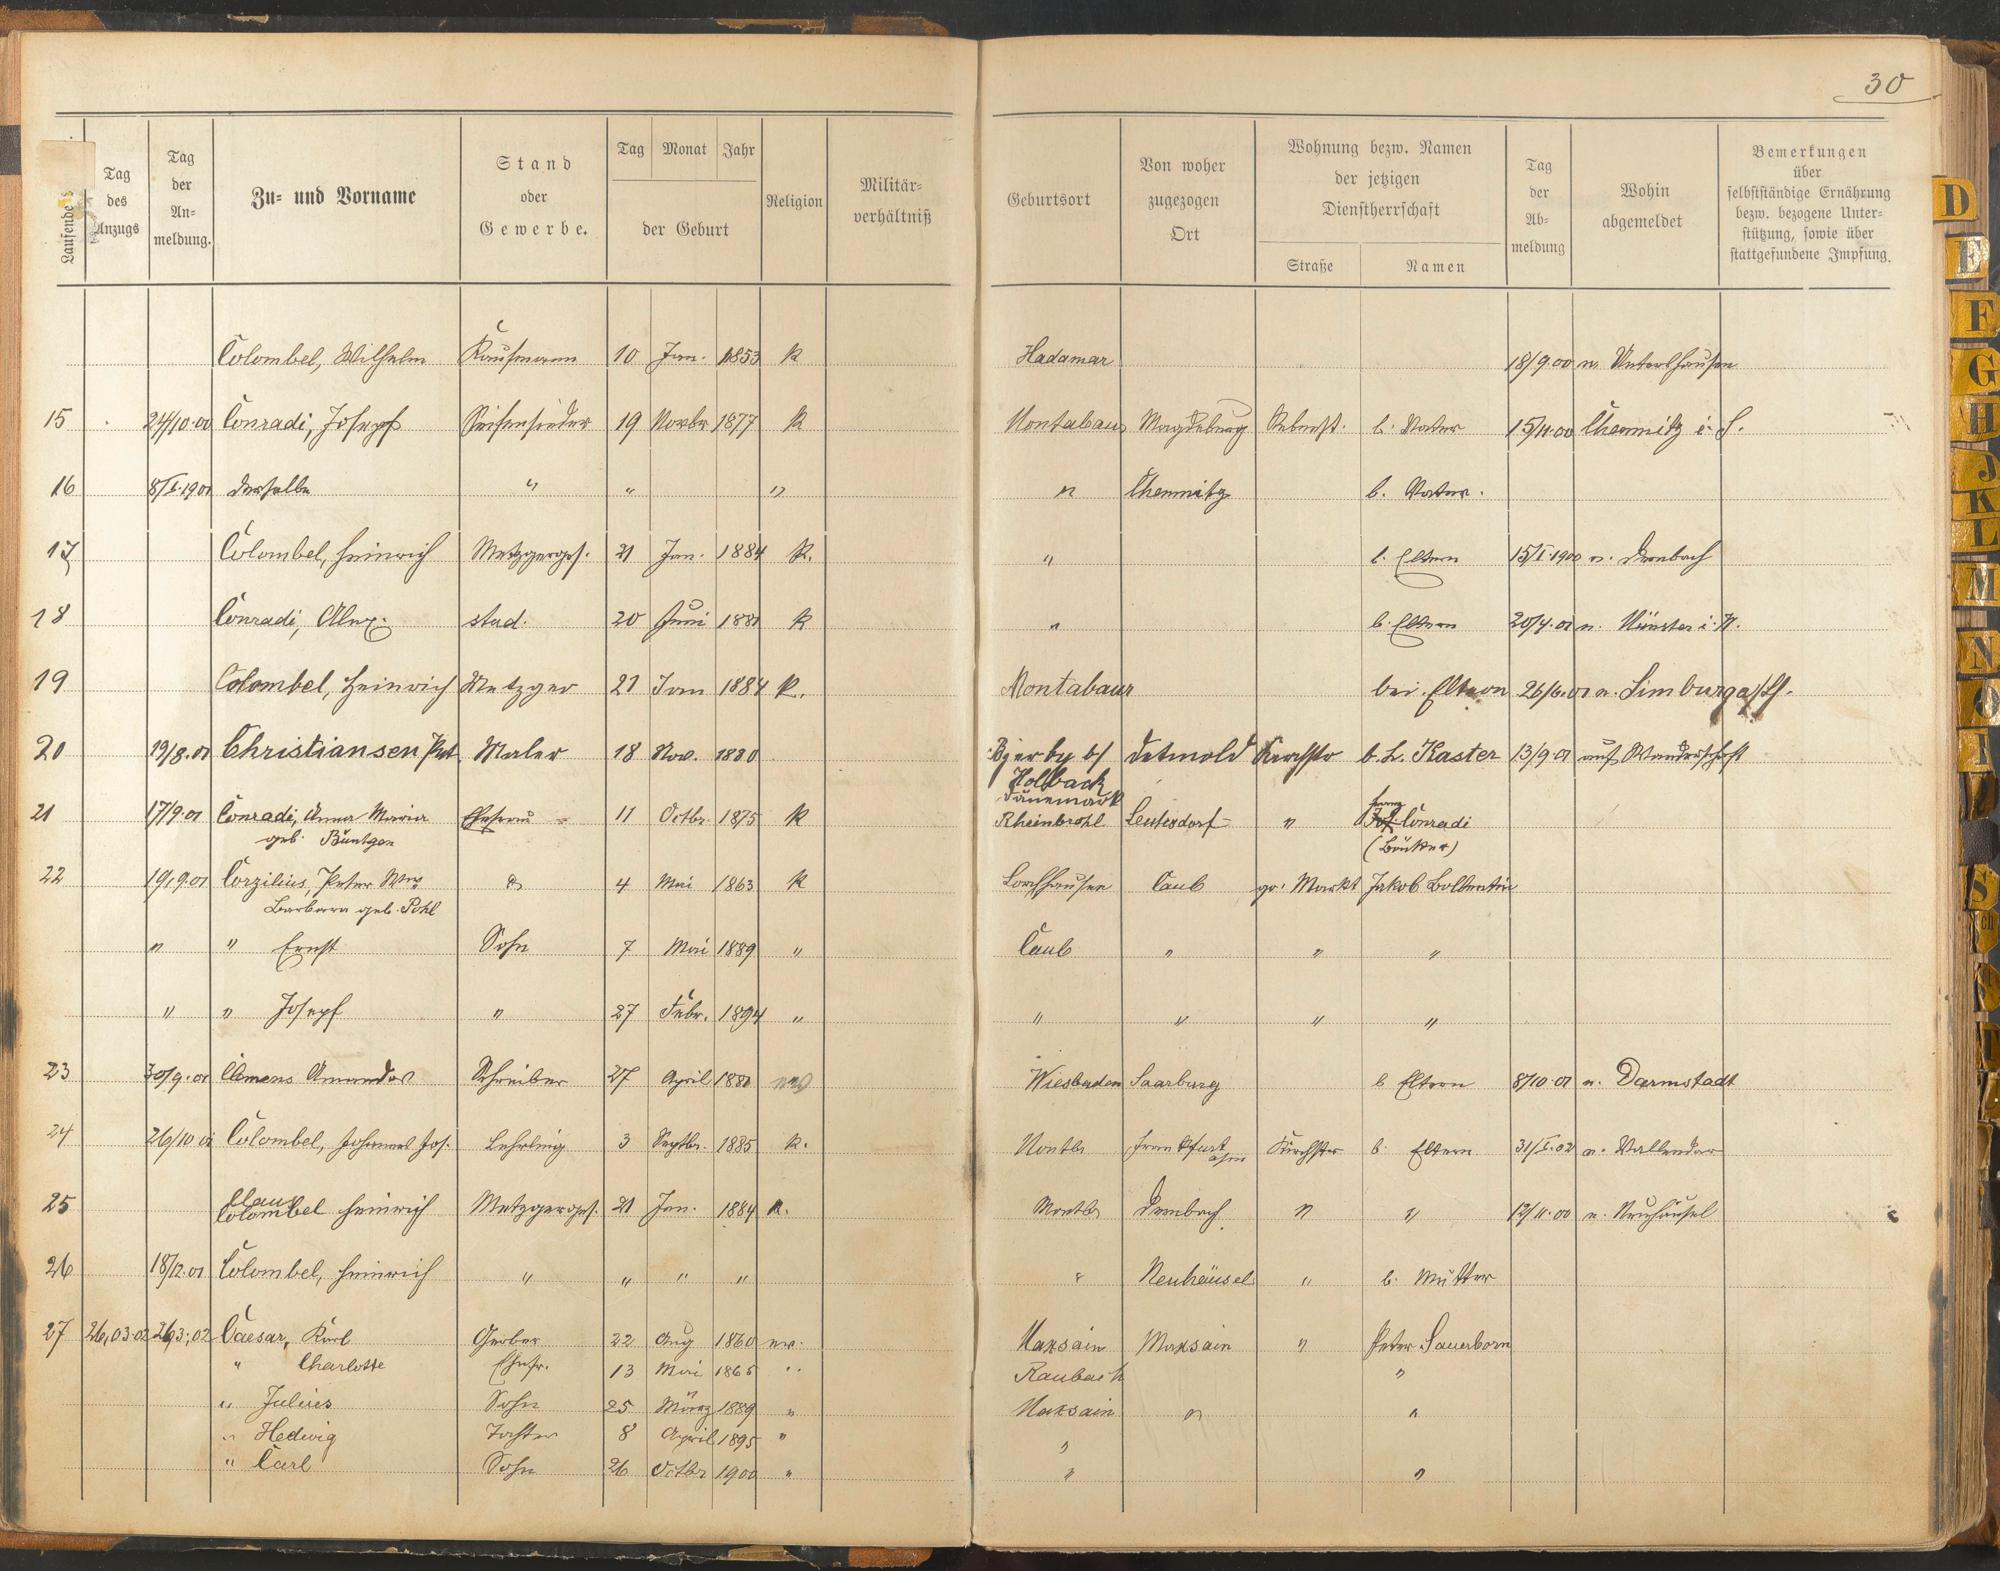 30
Laufende
Tag des Anzugs
Tag der An-meldung.
Zu- und Vorname
Stand oder Gewerbe.
Tag Monat Jahr
der Geburt
Religion
Militär-verhältniß
Geburtsort
Von woher zugezogen Ort
Wohnung bezw. Namen der jetzigen Dienstherrschaft
Straße Namen
Tag der Ab-meldung
Wohin abgemeldet
Bemerkungen über selbstständige Ernährung bezw. bezogene Unter-stützung, sowie über stattgefundene Impfung.
Colombel, Wilhelm Kaufmann 10 Jan. 1853 K Hadamar 18/9.00 n. Untershausen
15 24/10.00 Conradi, Joseph Seifensieder 19 Novbr 1877 K Montabaur Magdeburg Rebenst. b. Vater 15/11.00 Chemnitz i. S.
16 8/I.1901 derselbe " " " " Chemnitz b. Vater.
17 Colombel, Heinrich Metzgerges. 21 Jan. 1884 K. " b. Eltern 15/I.1900 n. Dernbach
18 Conradi, Alex. stud. 20 Juni 1881 K " b. Eltern 20/4.01 n. Münster i. W.
19 Colombel, Heinrich Metzger 21 Jan 1884 K. Montabaur bei Eltern 26/6.01 n. Limburg a/Lh.
20 19/8.01 Christiansen Pet. Maler 18 Nov. 1880 Bjerby b/ Holback Dänemark Detmold Kirchstr b. L. Kaster 13/9.01 auf Wanderschaft
21 17/9.01 Conradi, Anna Maria Ehefrau 11 Octbr. 1875 K Rheinbrohl Leutesdorf " Franz Conradi
geb. Büntgen (Bäcker)
22 19/9.01 Corzilius, Peter Ww. 4 Mai 1863 K Lorchhausen Caub gr. Markt Jakob
Barbara geb. Pohl
" " Ernst Sohn 7 Mai 1889 " Caub " " "
" " Joseph " 27 Febr. 1894 " " " " "
23 30/9.01 Clemens Amandus Schreiber 27 April 1881 Wiesbaden Saarburg b Eltern 8/10.01 n. Darmstadt
24 26/10.01 Colombel, Johannes Jos. Lehrling 3 Septbr. 1885 K. Montb Frankfurt Kirchstr b. Eltern 31/I.02 n. Vallendar
25 Claus
Colombel Heinrich Metzgerges. 21 Jan. 1884 K. Montb Dernbach " " 12/11.00 n. Neuhäusel
26 18/12.01 Colombel, Heinrich " " " " " Neuhäusel " b. Mutter
27 26.03.02 26.3.02 Caesar, Karl Gerber 22 Aug 1860 ev. Maxsain Maxsain " Peter Sauerborn
" Charlotte Ehefr. 13 Mai 1865 " Raubach "
" Julius Sohn 25 März 1889 " Maxsain " "
" Hedwig Tochter 8 April 1895 " "
" Carl Sohn 26 Octbr 1900 " " "
D
E
F
G
H
J
K
L
M
N
O
S
Sch